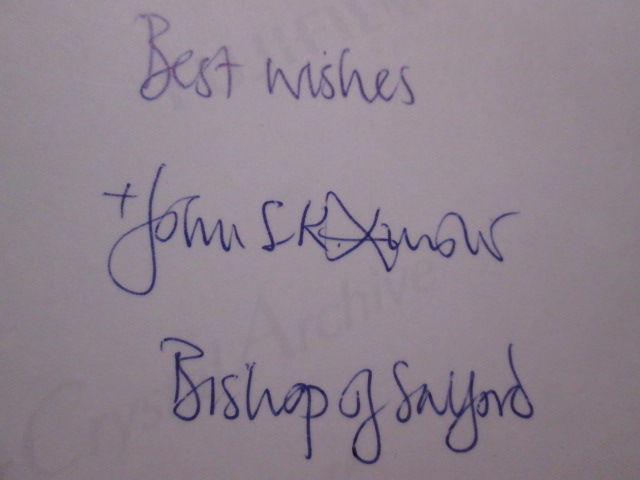 Best wishes
+John S K Arnold
Bishop of Salford
Crystal Archive